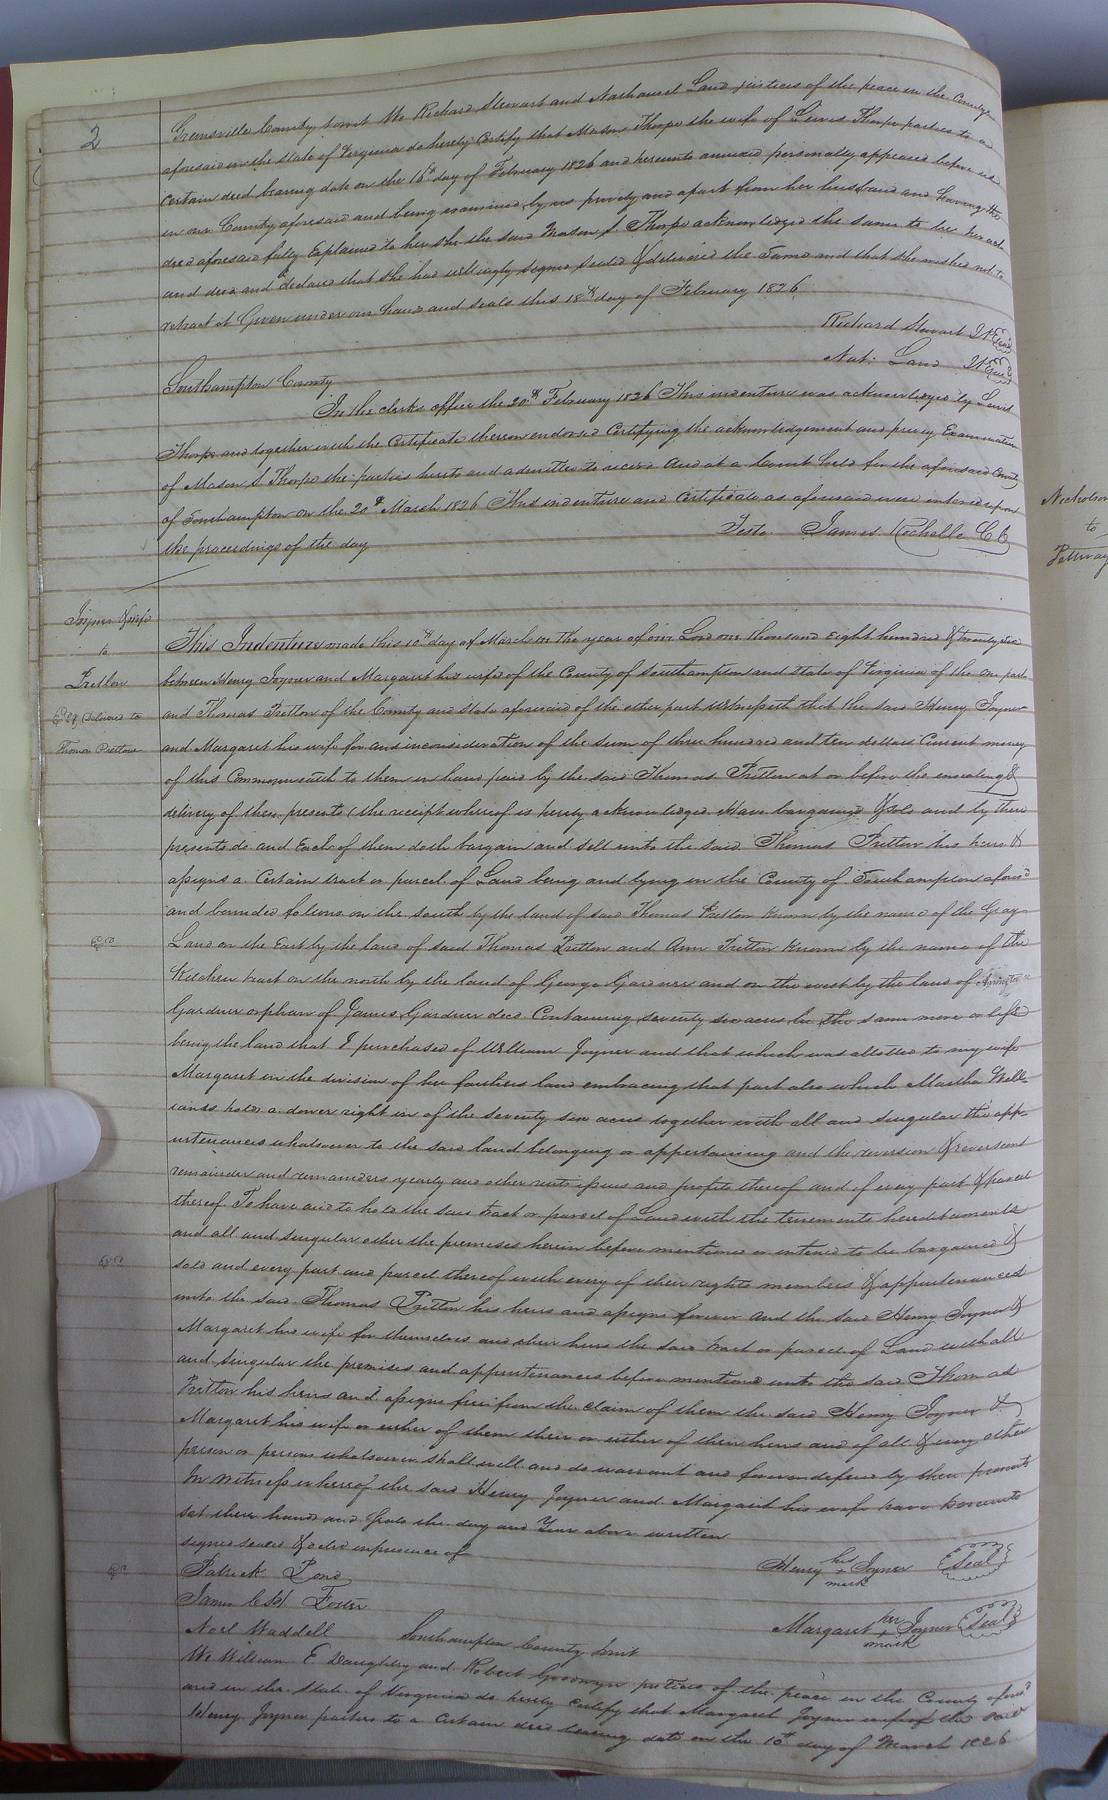 2
Greensville County towit We Richard Stewart and Nathaniel Land justices of the peace in the County
aforesaid in the State of Virginia do hereby Certify that Mason Thorpe the wife of Lewis Thorpe parties to a
certain deed bearing date on the 16th day of February 1826 and hereunto annexed personally appeared before us
in our County aforesaid and being examined by us privily and apart from her husband and having the
deed aforesaid fully Explained to her she the said Mason S. Thorpe acknowledged the same to be her act
and deed and declared that she had willingly signed sealed & delivered the Same and that she wished not to
retract it Given under our hands and seals this 18th day of February 1826
Richard Stewart
Nat: Land
Southampton County
In the clerks office the 20th February 1826 This indenture was acknowledged by Lewis
Thorpe and together with the Certificate thereon endorsed Certifying the acknowledgement and privy Examination
of Mason S Thorpe the parties hereto and admitted to record And at a Court held for the aforesaid County
of Southampton on the 20th March 1826 This indenture and Certificate as aforesaid were entered upon
the proceedings of the day
Teste James Rochelle C C
Joyner & wife
to
Pretlow
Delivered to
Thomas Pretlow
This Indenture made this 10th day of March in the year of our Lord one thousand Eight hundred & twenty six
between Henry Joyner and Margaret his wife of the County of Southampton and State of Virginia of the one part
and Thomas Pretlow of the County and State aforesaid of the other part Witnesseth that the said Henry Joyner
and Margaret his wife for and in consideration of the sum of three hundred and ten dollars Current money
of this Commonwealth to them in hand paid by the said Thomas Pretlow at or before the ensealing &
delivery of these presents (the receipt whereof is hereby acknowledged Have bargained & sold and by these
presents do and Each of them doth bargain and sell unto the said Thomas Pretlow his heirs &
assigns a Certain tract or parcel of Land being and lying in the County of Southampton aforsd
and bounded follows on the south by the land of said Thomas Pretlow known by the name of the Gray
Land on the East by the land of said Thomas Pretlow and Ann Pretlow known by the name of the
Kitchen tract on the north by the land of George Gardner and on the west by the land of
Gardner orphan of James Gardner decd Containing seventy six acres be the same more or less
being the land that I purchased of William Joyner and that which was allotted to my wife
Margaret in the division of her farthers land embracing that part also which Martha Will-
iams holds a dower right in of the seventy six acres together with all and singular the app-
urtenances whatsoever to the said land belonging or appertaining and the reversion & reversions
remainder and remainders yearly and other rents issues and profits thereof and of every part & parcel
thereof To have and to hold the said tract or parcel of Land with the tenements hereditaments
and all and singular other the premises herein before mentioned or intend to be bargained &
sold and every part and parcel thereof with every of their rights members & appurtenances
unto the said Thomas Pretlow his heirs and assigns forever and the said Henry Joyner &
Margaret his wife for themselves and their heirs the said tract or parcel of Land with all
and singular the premises and appurtenances before mentioned unto the said Thomas
Pretlow his heirs and assigns free from the claim of them the said Henry Joyner &
Margaret his wife or either of them their or either of their heirs and of all & every other
person or persons whatsoever shall will and do warrant and forever defend by these presents
In Witness whereof the said Henry Joyner and Margaret his wife have hereunto
set their hands and seals the day and Year above written
signed sealed & deld in presence of
Henry his + mark Joyner Seal
Patrick Pond
James Foster
Margaret her + mark Joyner Seal
Noel Waddell
Southampton County towit
We William E Daughtry and Robert Goodwyn justices of the peace in the County aforsd
and in the State of Virginia do hereby Certify that Margaret Joyner wife of the said
Henry Joyner parties to a Certain deed bearing date on the 10th day of March 1826
Nicholson
to